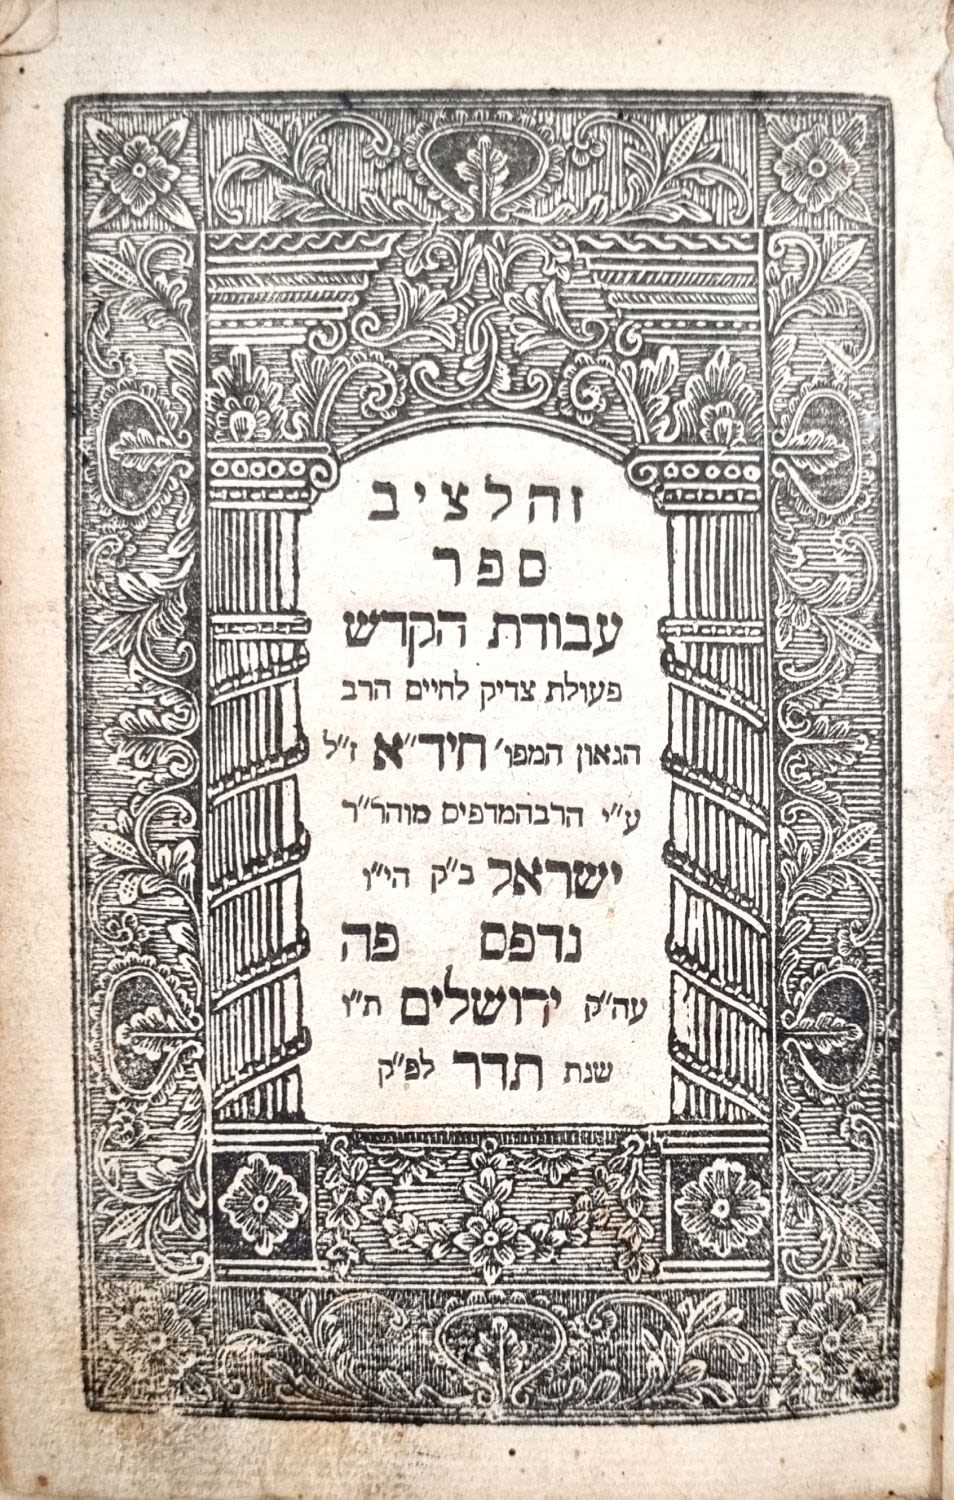 זה לציב
ספר
עבודת הקדש
פעולת צדיק לחיים הרב
הגאון המפו׳ חיד״א ז״ל
ע״י הרב המדפיס מוהר״ר
ישראל ב״ק הי״ו
נדפס פה
עה״ק ירושלים ת״ו
שנת תדר לפ״ק